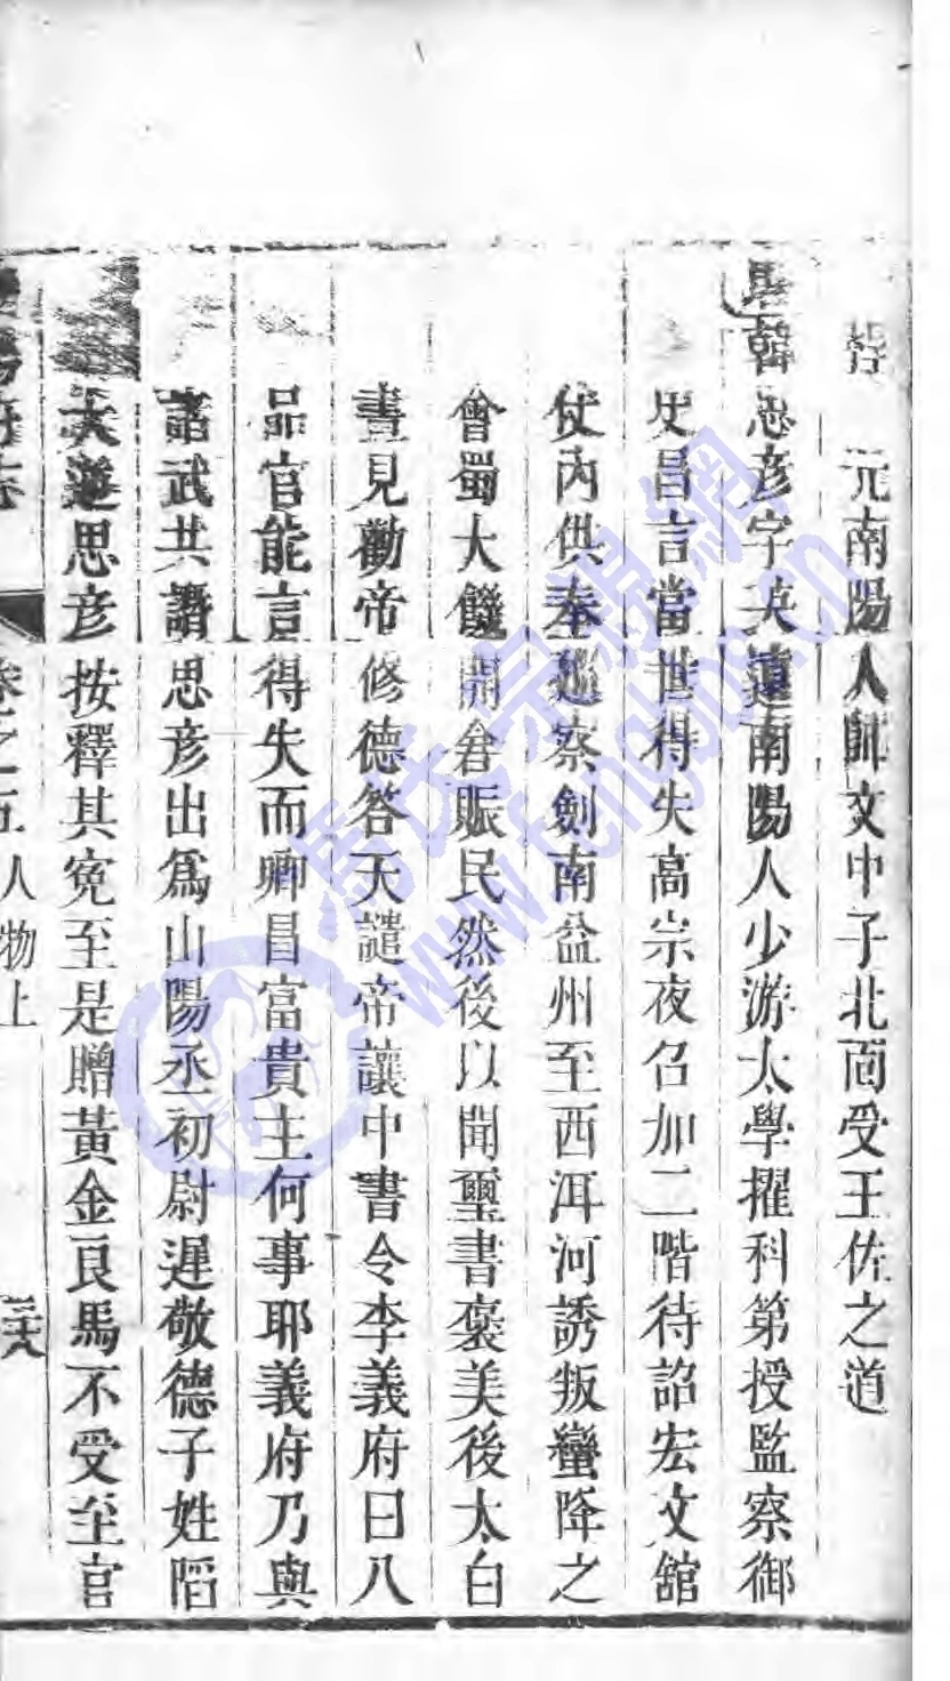 元南陽人師文中子北面受王佐之道
韓思彥字英遠南陽人少游太學擢科第授監察御
史昌言當世得失高宗夜召加二階待詔宏文舘
仗內供奉巡察劍南益州至西洱河誘叛蠻降之
會蜀大饑開倉賑民然後以聞璽書褒美後太白
晝見勸帝修德答天譴帝讓中書令李義府曰八
品官能言得失而卿昌富貴主何事耶義府乃與
諸武共譖思彥出爲山陽丞初尉遲敬德子姓陷
大逆思彥按釋其寃至是贈黃金良馬不受至官
卷之五人物上
三十八
www.fengbo.cn